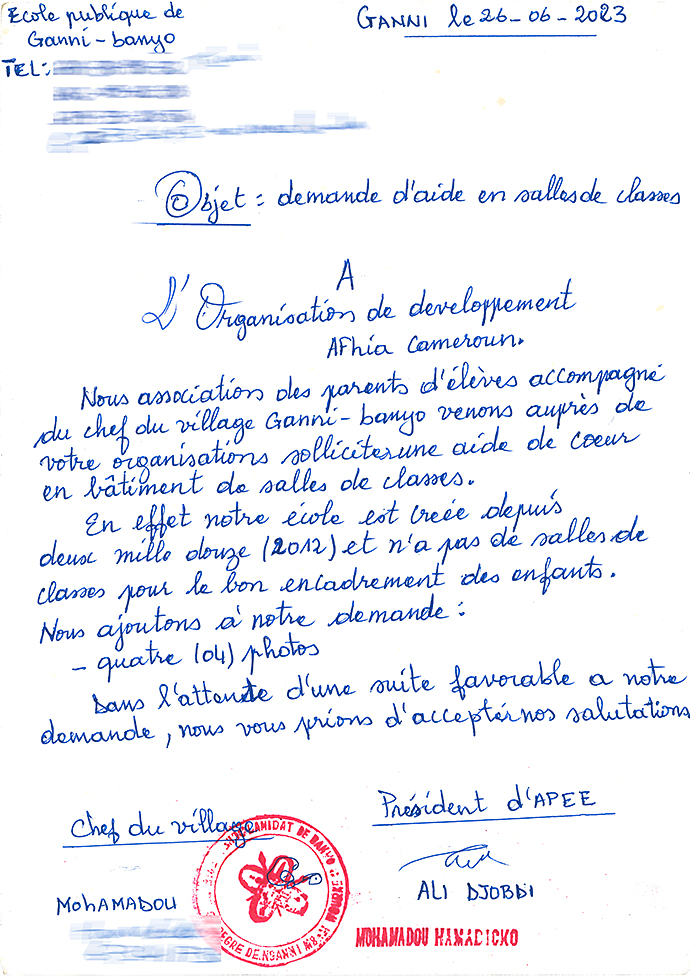 Ecole publique de
Ganni-banyo
TEL:
GANNI le 26-06-2023
Objet : demande d'aide en salles de classes
A
L'Organisation de developpement
AFhia Cameroun.
Nous association des parents d'élèves accompagné
du chef du village Ganni-banyo venons auprès de
votre organisations solliciter une aide de coeur
en bâtiment de salles de classes.
En effet notre école est creée depuis
deux mille douze (2012) et n'a pas de salles de
classes pour le bon encadrement des enfants.
Nous ajoutons à notre demande :
- quatre (04) photos
Dans l'attente d'une suite favorable a notre
demande, nous vous prions d'accepter nos salutations
Chef du village
Président d'APEE
MOHAMADOU
ALI DJOBDI
MOHAMADOU HAMADICKO